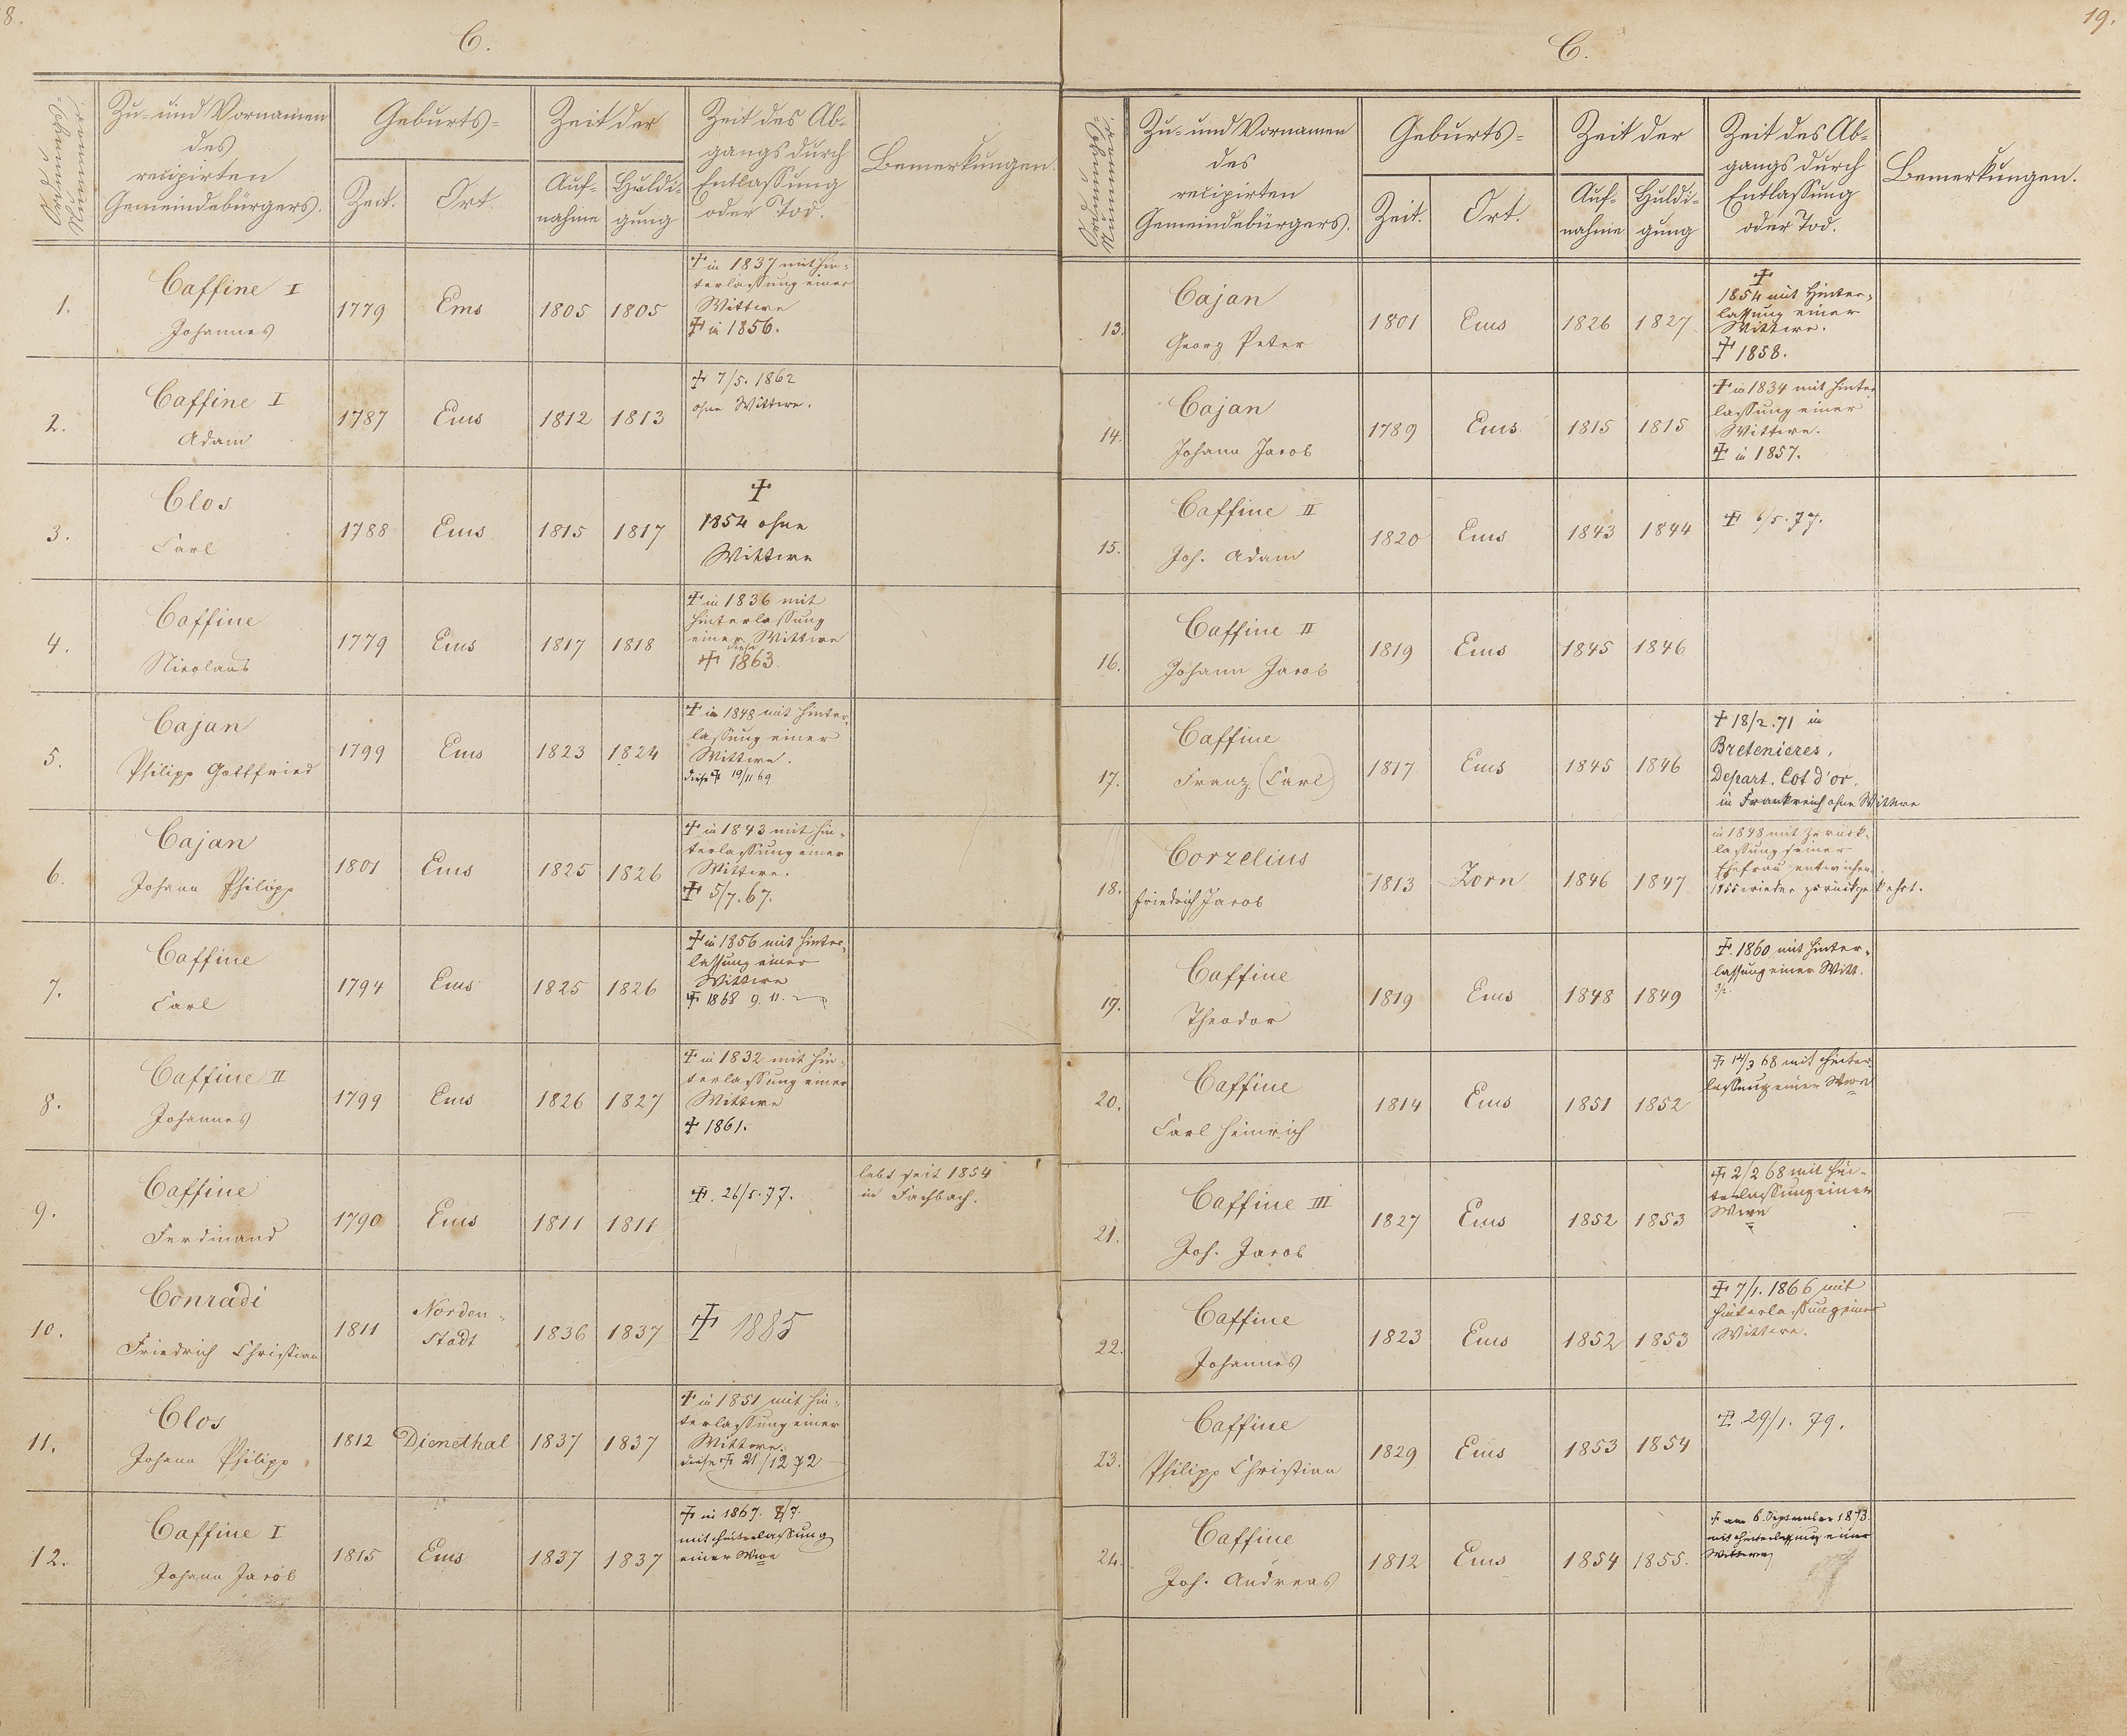 8.
C.
Ordnungs-
Nummer.
Zu- und Vornamen
des
recipirten
Gemeindebürgers.
Geburts-
Zeit.
Ort.
Zeit der
Auf-
nahme
Huldi-
gung
Zeit des Ab-
gangs durch
Entlassung
oder Tod.
Bemerkungen.
1.
Caffine I
Johannes
1779
Ems
1805
1805
† in 1837 mit Hin-
terlassung einer
Wittwe
† in 1856.
2.
Caffine I
Adam
1787
Ems
1812
1813
† 7/5. 1862
ohne Wittwe.
3.
Clos
Carl
1788
Ems
1815
1817
†
1854 ohne
Wittwe
4.
Caffine
Nicolaus
1779
Ems
1817
1818
† in 1836 mit
Hinterlassung
einer Wittwe
diese
† 1863.
5.
Cajan
Philipp Gottfried
1799
Ems
1823
1824
† in 1848 mit Hinter-
lassung einer
Wittwe.
diese † 19/11 69
6.
Cajan
Johann Philipp
1801
Ems
1825
1826
† in 1843 mit Hin-
terlassung einer
Wittwe.
† 5/7. 67.
7.
Caffine
Carl
1794
Ems
1825
1826
† in 1856 mit Hinter-
lassung einer
Wittwe
† 1868 9. 11.
8.
Caffine II
Johannes
1799
Ems
1826
1827
† in 1832 mit Hin-
terlassung einer
Wittwe
† 1861.
9.
Caffine
Ferdinand
1790
Ems
1811
1811
†. 26/5. 77.
lebt seit 1854
in Fachbach.
10.
Conradi
Friedrich Christian
1811
Norden-
stadt
1836
1837
† 1885
11.
Clos
Johann Philipp
1812
Dienethal
1837
1837
† in 1851 mit Hin-
terlassung einer
Wittwe.
diese † 21/12 72
12.
Caffine I
Johann Jacob
1815
Ems
1837
1837
† in 1867. 8/7.
mit Hinterlassung
einer Wwe
19.
C.
Ordnungs-
Nummer.
Zu- und Vornamen
des
recipirten
Gemeindebürgers.
Geburts-
Zeit.
Ort.
Zeit der
Auf-
nahme
Huldi-
gung
Zeit des Ab-
gangs durch
Entlassung
oder Tod.
Bemerkungen.
13.
Cajan
Georg Peter
1801
Ems
1826
1827
†
1854 mit Hinter-
lassung einer
Wittwe.
† 1858.
14.
Cajan
Johann Jacob
1789
Ems
1815
1815
† in 1834 mit Hinter-
lassung einer
Wittwe.
† in 1857.
15.
Caffine II
Joh. Adam
1820
Ems
1843
1844
† 6/5. 77.
16.
Caffine II
Johann Jacob
1819
Ems
1845
1846
17.
Caffine
Franz (Carl)
1817
Ems
1845
1846
† 18/2. 71 in
Bretenieres,
Depart. Cot d'or.
in Frankreich ohne Wittwe
18.
Corzelius
Friedrich Jacob
1813
Zorn
1846
1847
in 1848 mit Zurück-
lassung seiner
Ehefrau entwichen
1855 wieder zurückgekehrt.
19.
Caffine
Theodor
1819
Ems
1848
1849
†. 1860 mit Hinter-
lassung einer Witt.
20.
Caffine
Carl Heinrich
1814
Ems
1851
1852
† 14/3 68 mit Hinter-
lassung einer Wwe
21.
Caffine III
Joh. Jacob
1827
Ems
1852
1853
† 2/2 68 mit Hin-
terlassung einer
Wwe
22.
Caffine
Johannes
1823
Ems
1852
1853
† 7/1. 1866 mit
Hinterlassung einer
Wittwe.
23.
Caffine
Philipp Christian
1829
Ems
1853
1854
† 29/1. 79.
24.
Caffine
Joh. Andreas
1812
Ems
1854
1855.
† am 6. September 1873
mit Hinterlassung einer
Wittwe